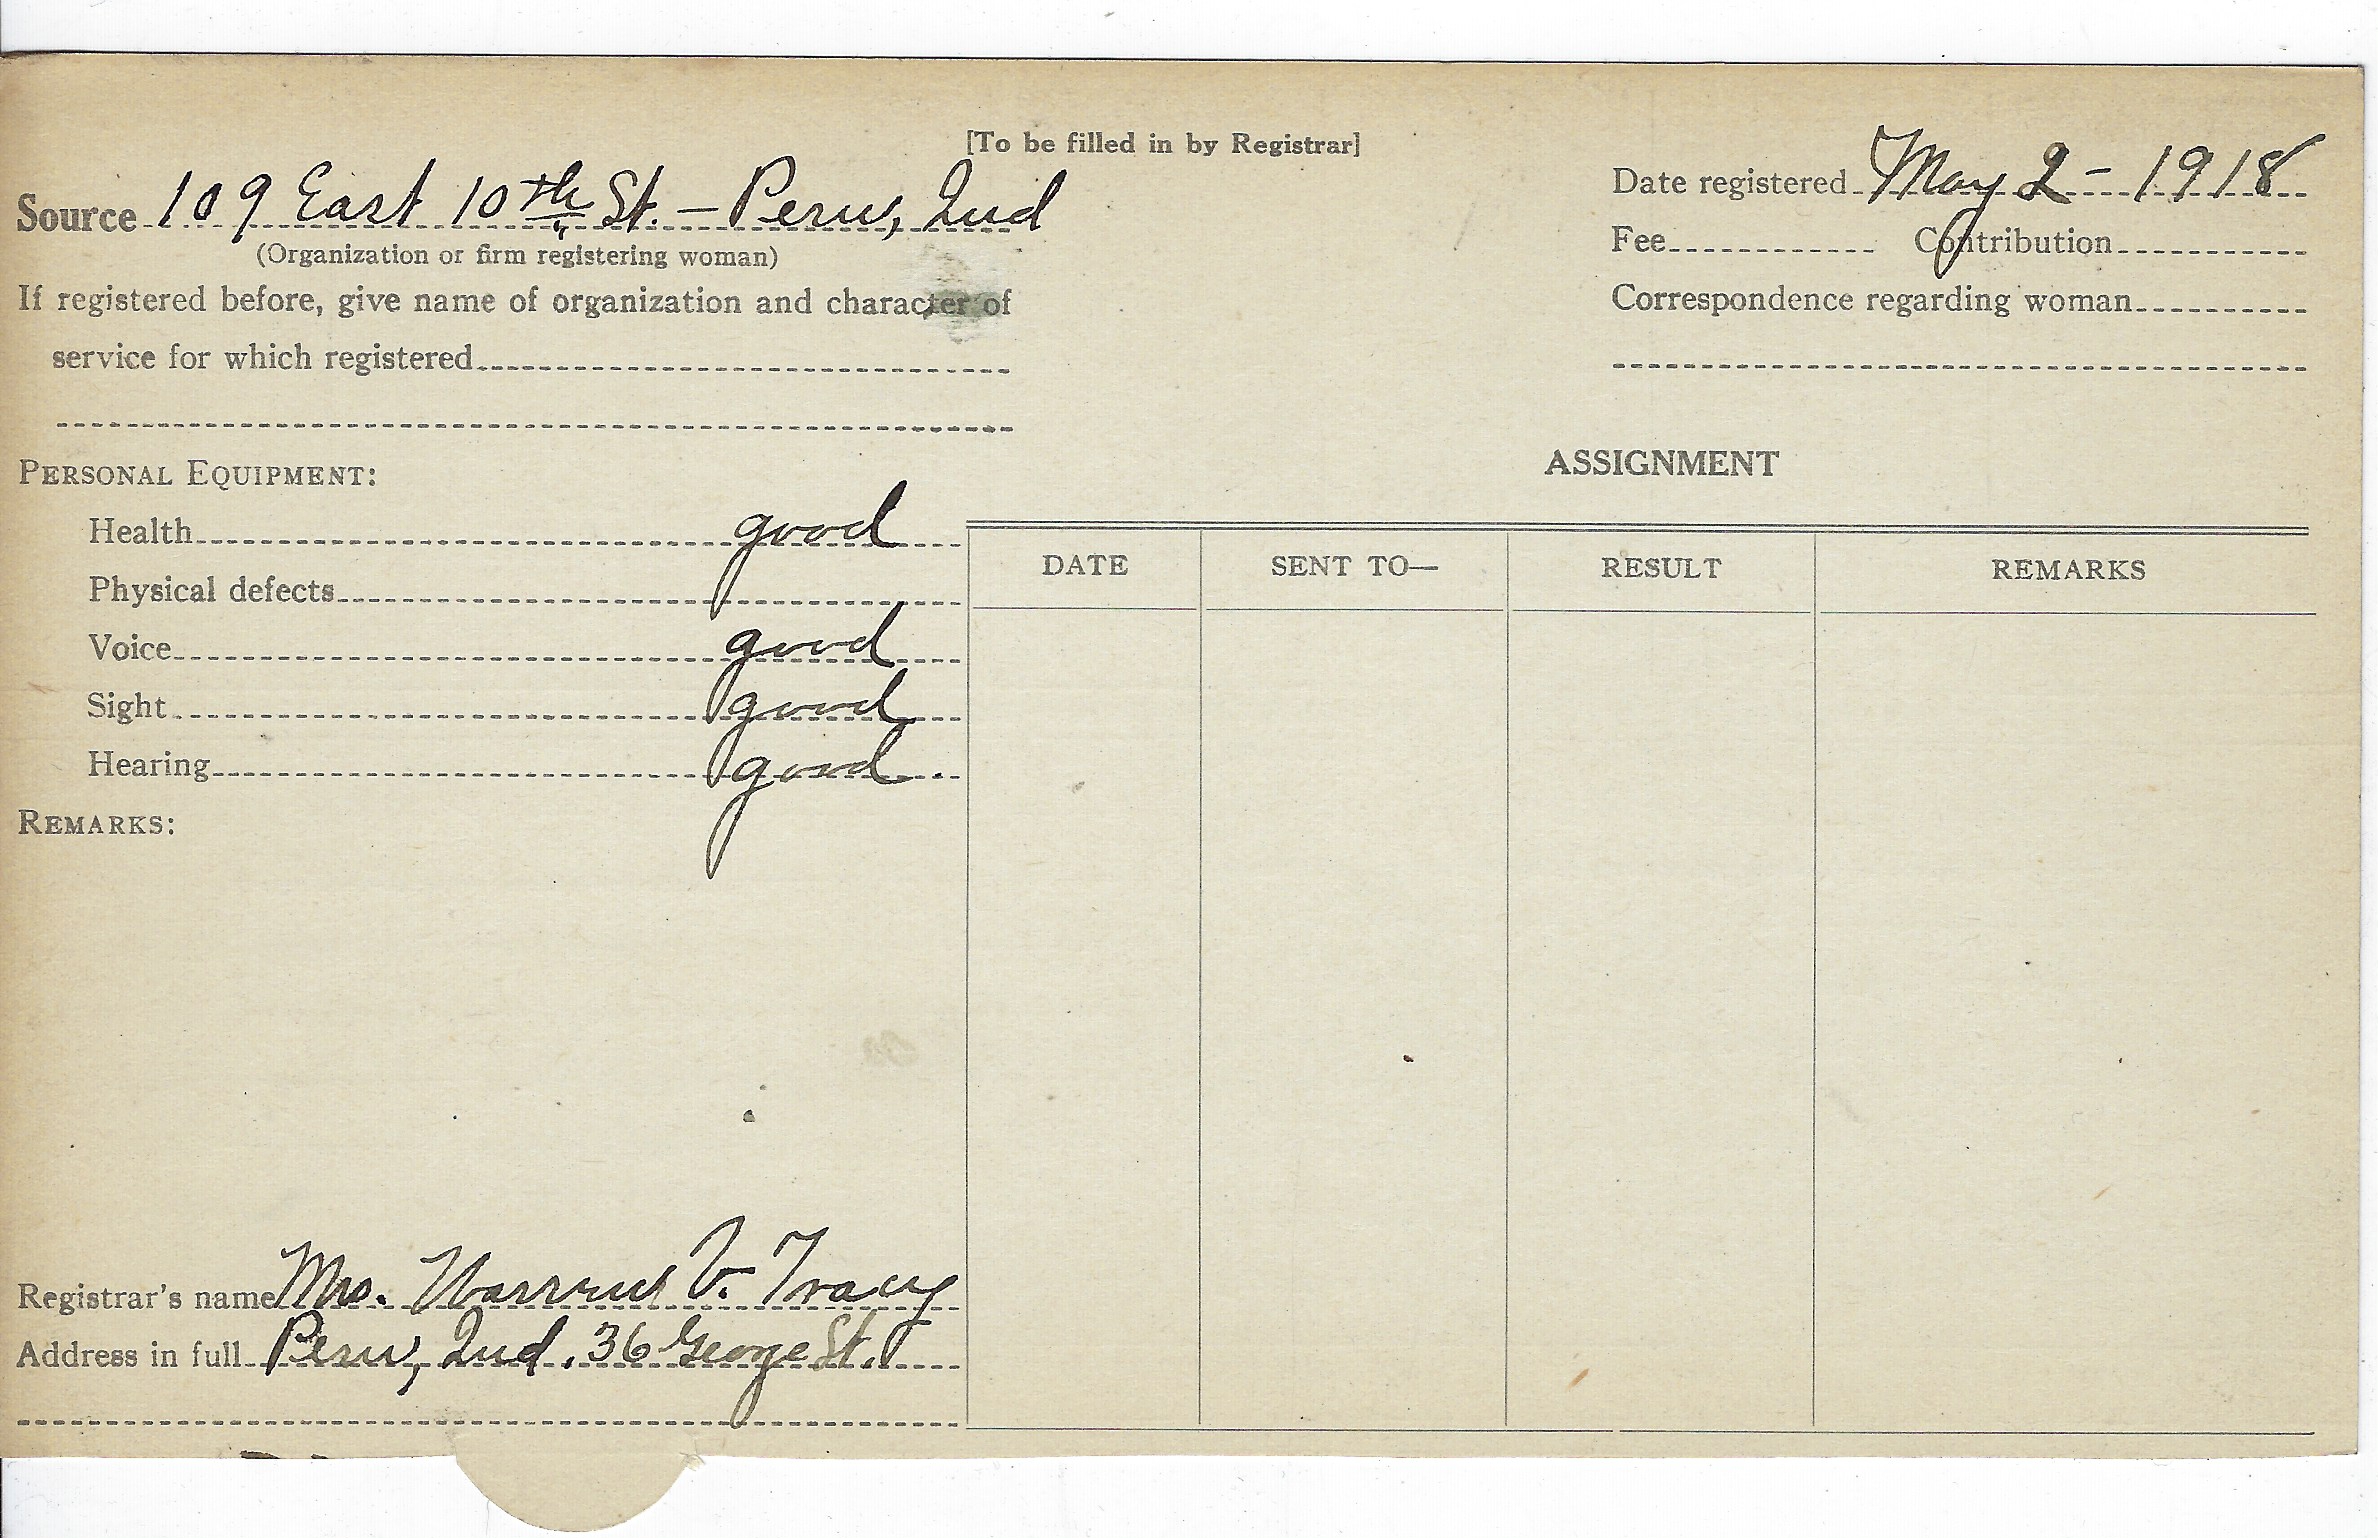 [To be filled in by Registrar]
Source 109 East 10th St. – Peru, Ind
(Organization or firm registering woman)
If registered before, give name of organization and character of
service for which registered
Date registered May 2 - 1918
Fee Contribution
Correspondence regarding woman
PERSONAL EQUIPMENT:
Health good
Physical defects
Voice good
Sight good
Hearing good
REMARKS:
ASSIGNMENT
DATE SENT TO— RESULT REMARKS
Registrar's name Mrs. Warren V. Tracy
Address in full Peru, Ind. 36 George St.